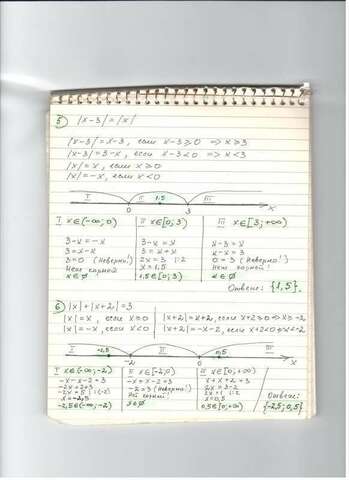 5) |x-3|=|x|
|x-3|=x-3, если x-3≥0 => x≥3
|x-3|=3-x, если x-3<0 => x<3
|x|=x, если x≥0
|x|=-x, если x<0
I II 1,5 III
0 3 x
I x∈(-∞;0)
3-x=-x
3=x-x
3=0 (Неверно!)
Нет корней
x∈∅
II x∈[0;3)
3-x=x
3=x+x
2x=3 |:2
x=1,5
1,5∈[0;3)
III x∈[3;+∞)
x-3=x
x-x=3
0=3 (Неверно!)
Нет корней!
x∈∅
Ответ: {1,5}.
6) |x|+|x+2|=3
|x|=x, если x≥0
|x|=-x, если x<0
|x+2|=x+2, если x+2≥0 => x≥-2
|x+2|=-x-2, если x+2<0 => x<-2
I -2,5 II 0,5 III
-2 0 x
I x∈(-∞;-2)
-x-x-2=3
-2x=2+3
-2x=5 |:(-2)
x=-2,5
-2,5∈(-∞;-2)
II x∈[-2;0)
-x+x+2=3
-2=3 (Неверно!)
Нет корней!
x∈∅
III x∈[0;+∞)
x+x+2=3
2x=3-2
2x=1 |:2
x=0,5
0,5∈[0;+∞)
Ответ:
{-2,5; 0,5}